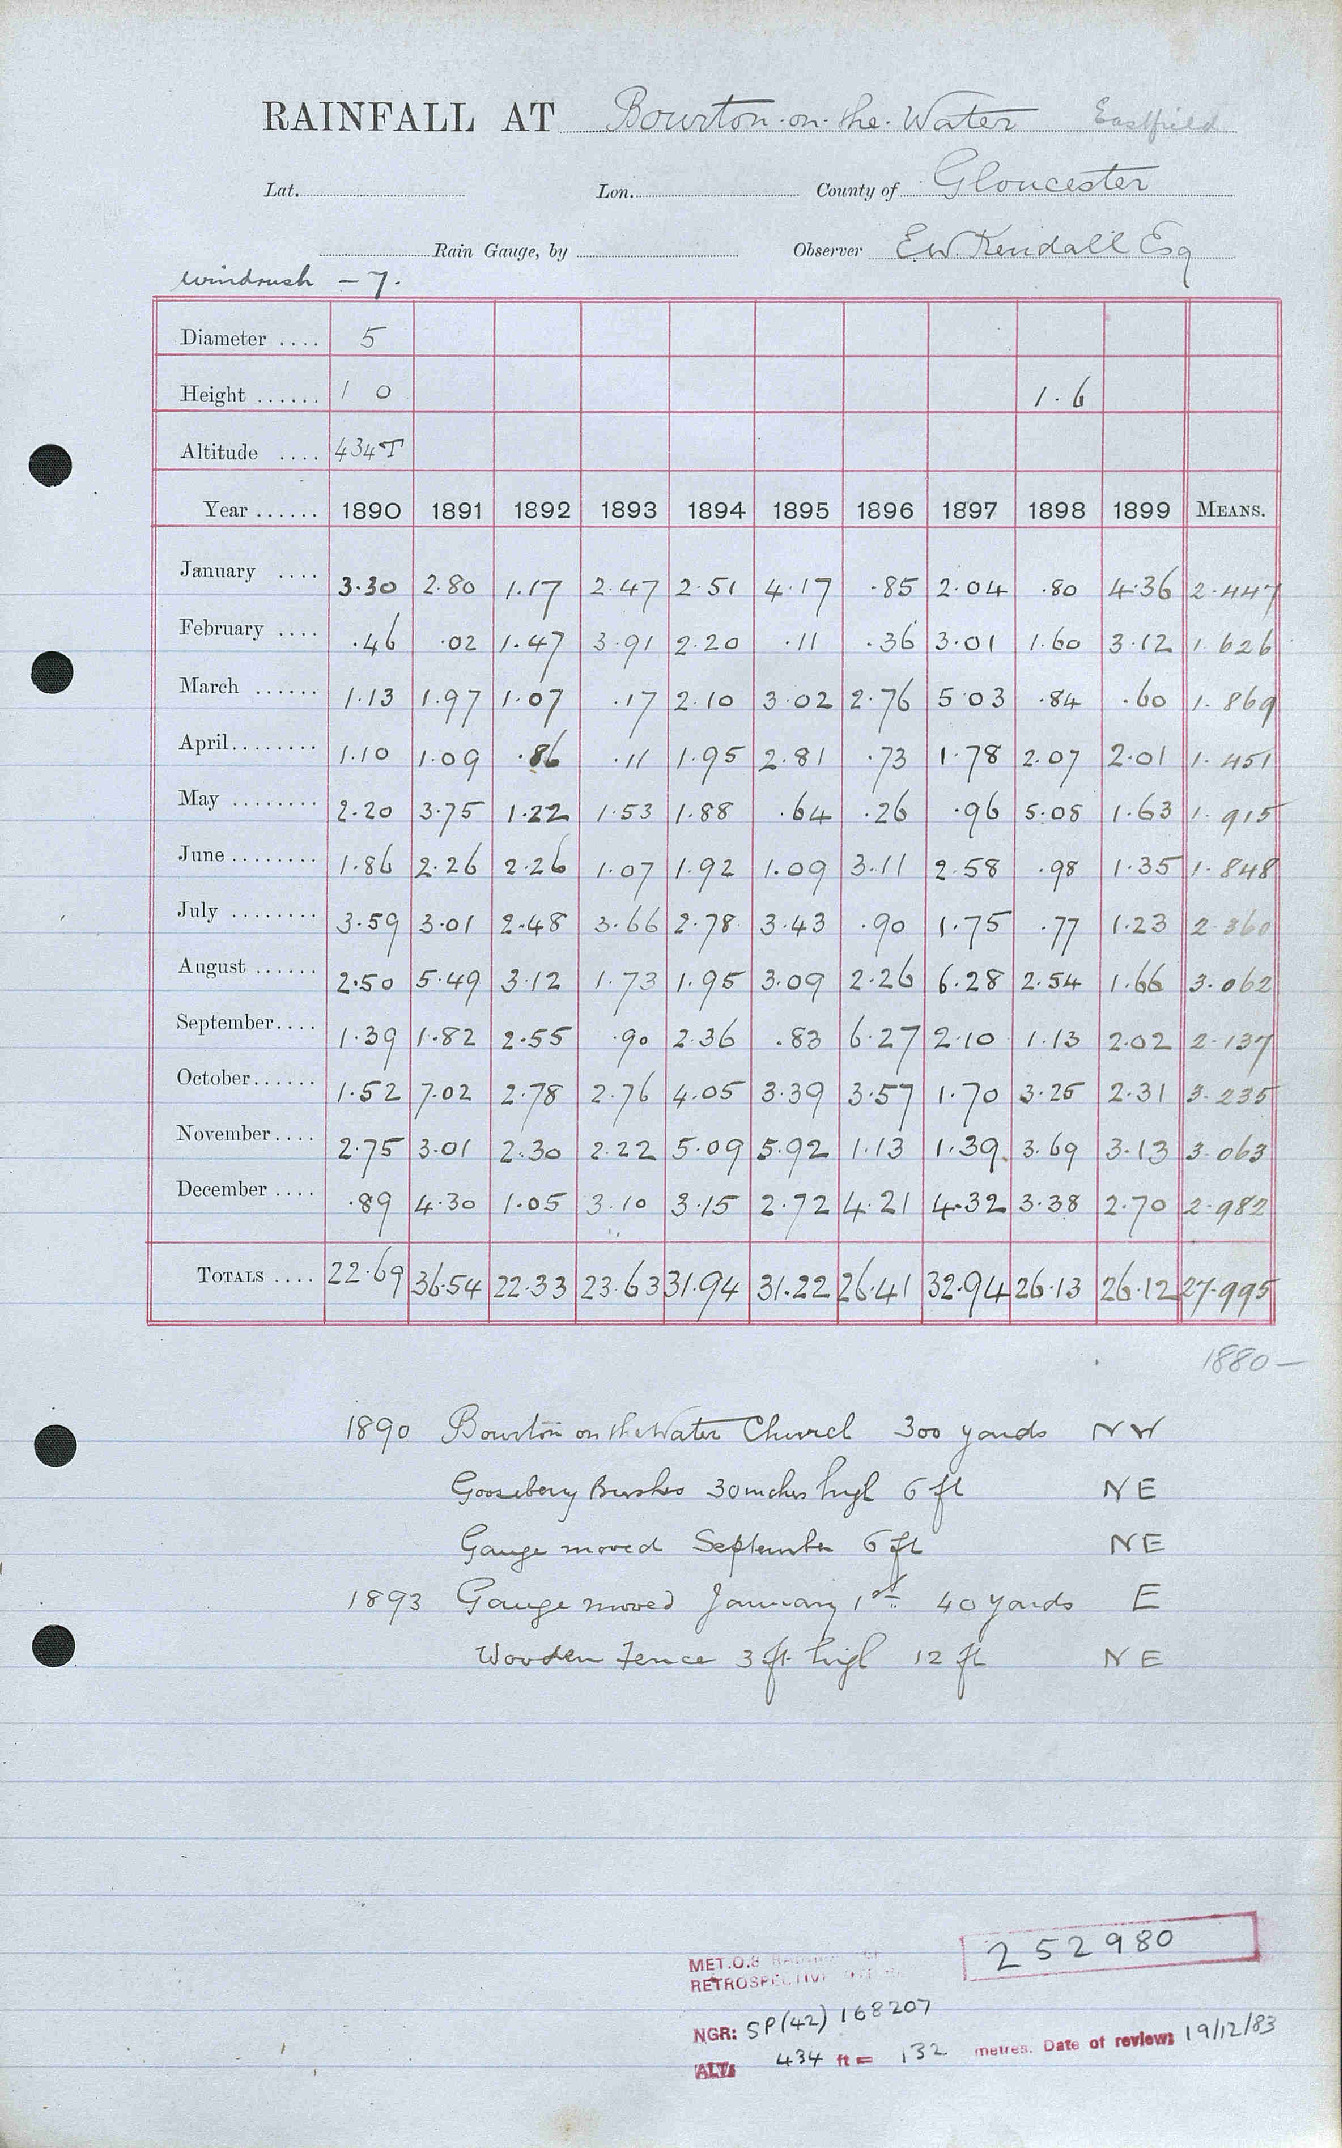 RAINFALL AT Bourton-on-the-Water Eastfield
Lat. Lon. County of Gloucester
Rain Gauge, by Observer E.W. Kendall Esq
Windrush - 7.
Diameter .... 5
Height ...... 1 0 1.6
Altitude .... 434T
Year ...... 1890 1891 1892 1893 1894 1895 1896 1897 1898 1899 MEANS.
January .... 3.30 2.80 1.17 2.47 2.51 4.17 .85 2.04 .80 4.36 2.447
February .... .46 .02 1.47 3.91 2.20 .11 .36 3.01 1.60 3.12 1.626
March ...... 1.13 1.97 1.07 .17 2.10 3.02 2.76 5.03 .84 .60 1.869
April........ 1.10 1.09 .86 .11 1.95 2.81 .73 1.78 2.07 2.01 1.451
May ........ 2.20 3.75 1.22 1.53 1.88 .64 .26 .96 5.08 1.63 1.915
June ........ 1.86 2.26 2.26 1.07 1.92 1.09 3.11 2.58 .98 1.35 1.848
July ........ 3.59 3.01 2.48 3.66 2.78 3.43 .90 1.75 .77 1.23 2.360
August ...... 2.50 5.49 3.12 1.73 1.95 3.09 2.26 6.28 2.54 1.66 3.062
September.... 1.39 1.82 2.55 .90 2.36 .83 6.27 2.10 1.13 2.02 2.137
October...... 1.52 7.02 2.78 2.76 4.05 3.39 3.57 1.70 3.25 2.31 3.235
November.... 2.75 3.01 2.30 2.22 5.09 5.92 1.13 1.39 3.69 3.13 3.063
December .... .89 4.30 1.05 3.10 3.15 2.72 4.21 4.32 3.38 2.70 2.982
TOTALS .... 22.69 36.54 22.33 23.63 31.94 31.22 26.41 32.94 26.13 26.12 27.995
1880-
1890 Bourton on the Water Church 300 yards NW
Gooseberry Bushes 30 inches high 6 ft NE
Gauge moved September 6 ft NE
1893 Gauge moved January 1st 40 yards E
Wooden Fence 3 ft high 12 ft NE
252980
MET.O.8
RETROSPECTIVE
NGR: SP(42) 168207
ALT: 434 ft = 132 metres. Date of review: 19/12/83